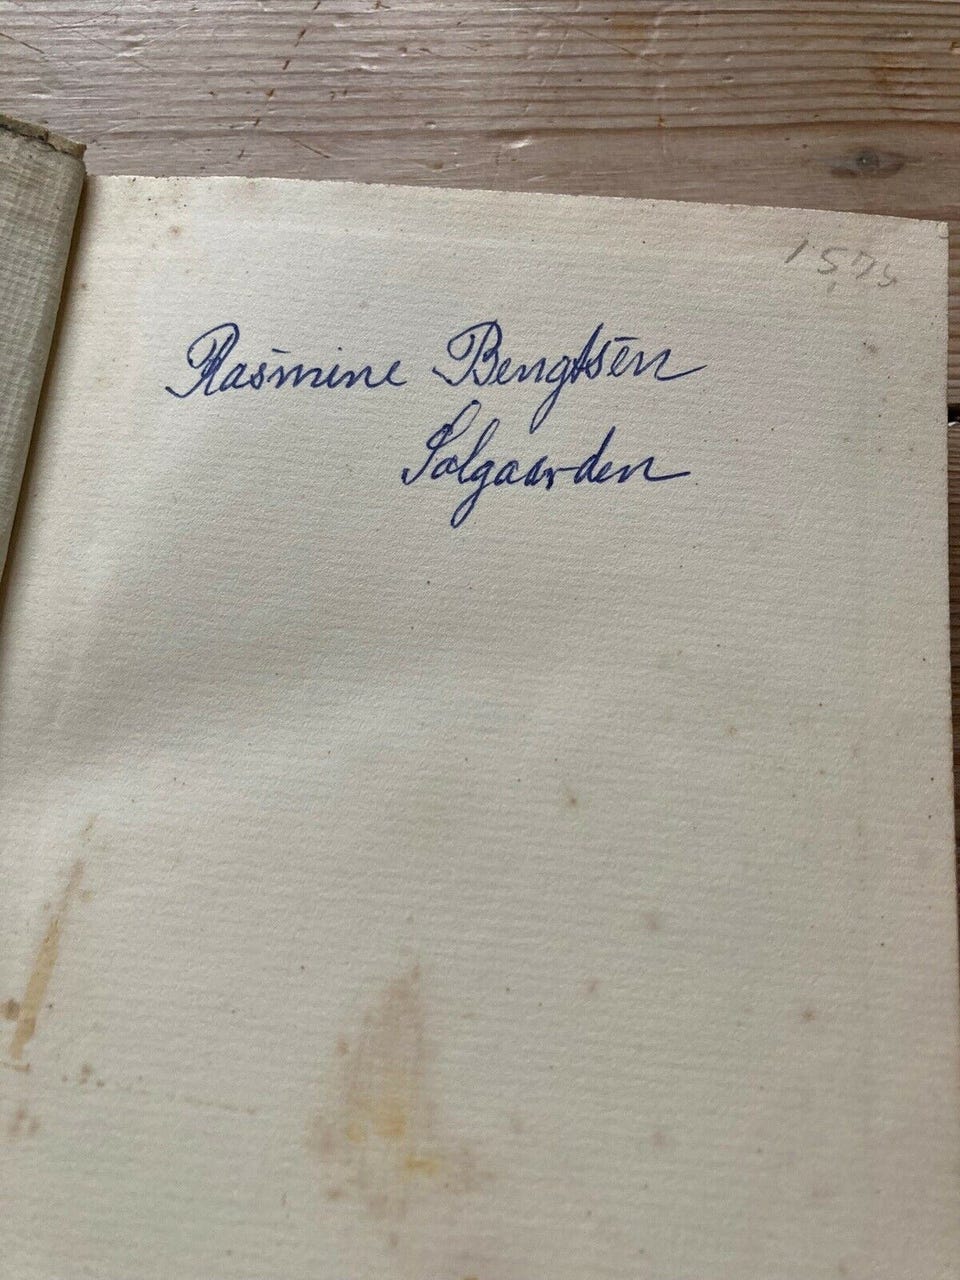 Rasmine Bengtsen
Solgaarden